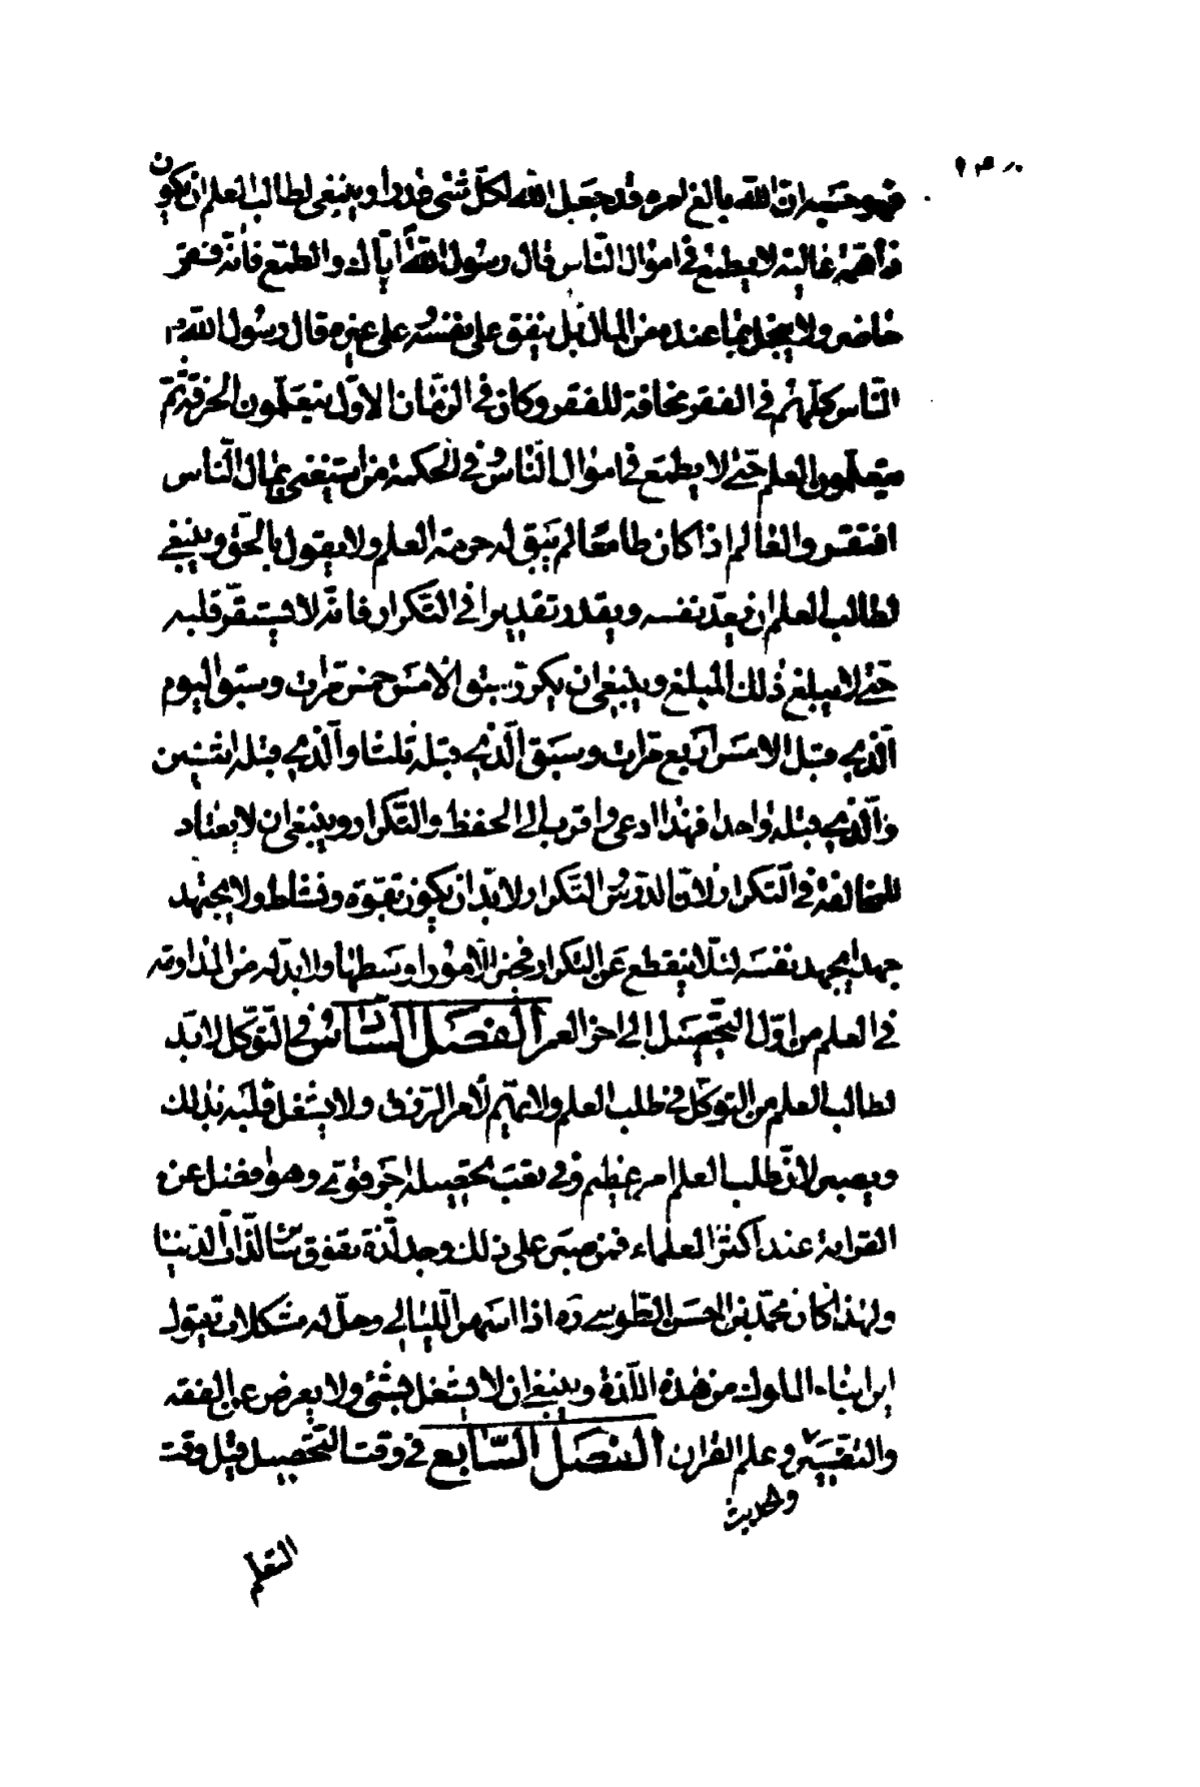 فهو حسبه ان الله بالغ امره قد جعل الله لكل شئ قدرا وينبغى لطالب العلم ان يكون
ذا همة عالية لا يطمع فى اموال الناس قال رسول الله اياك والطمع فانه فقر
حاضر ولا يبخل بما عنده من المال بل ينفق على نفسه على غيره قال رسول الله
الناس كلهم فى الفقر مخافة للفقر وكان فى الزمان الاول يتعلمون الحرفة ثم
يتعلمون العلم حتى لا يطمع فى اموال الناس وفى الحكمة من استغنى بمال الناس
افتقر والعالم اذا كان طامعا لم يبق له حرمة العلم ولا يقول بالحق وينبغى
لطالب العلم ان يعد نفسه ويقدر تقديرا فى التكرار فانه لا يستقر قلبه
حتى لا يبلغ ذلك المبلغ وينبغى ان يكرر سبق الامس خمس مرات وسبق اليوم
الذى قبل الامس اربع مرات وسبق الذى قبله ثلثا والذى قبله اثنين
والذى قبله واحدا فهذا ادعى واقرب الى الحفظ والتكرار وينبغى ان لا يعتاد
المخالفة فى التكرار لان الدرس التكرار ولا بد ان يكون بقوة ونشاط ولا يجتهد
جهدا يجهد نفسه لئلا ينقطع عن التكرار فخير الامور اوسطها ولا بد له من المداومة
فى العلم من اول التحصيل الى اخر العمر الفصل السادس فى التوكل لا بد
لطالب العلم من التوكل فى طلب العلم ولا يهتم لامر الرزق ولا يشغل قلبه بذلك
ويصبر لان طلب العلم امر عظيم وفى تعب تحصيله اجر قوى وهو افضل من
القراءة عند اكثر العلماء فمن صبر على ذلك وجد لذة تفوق سائر لذات الدنيا
ولهذا كان محمد بن الحسن الطوسى ره اذا اسهر الليالى وحل له مشكلات يقول
اين ابناء الملوك من هذه اللذة وينبغى ان لا يشتغل بشئ ولا يعرض عن الفقه
والتفسير وعلم القران الفصل السابع فى وقت التحصيل قيل وقت
والحديث
التعلم